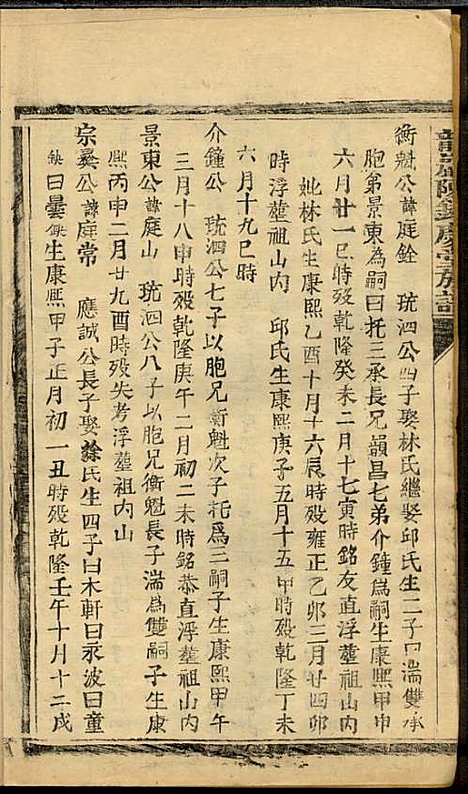 衡魁公諱庭銓 琉泗公四子娶林氏繼娶邱氏生二子曰湍雙承
胞弟景東為嗣曰托三承長兄韻昌七弟介鐘為嗣生康熙甲申
六月廿一巳時殁乾隆癸未二月十七寅時銘友直浮塟祖山內
妣林氏生康熙乙酉十月十六辰時殁雍正乙卯三月廿四卯
時浮塟祖山內 邱氏生康熙庚子五月十五甲時殁乾隆丁未
六月十九巳時
介鐘公 琉泗公七子以胞兄衡魁次子托爲三嗣子生康熙甲午
三月十八申時殁乾隆庚午二月初二未時銘恭直浮塟祖山內
景東公諱庭山 琉泗公八子以胞兄衡魁長子湍爲雙嗣子生康
熙丙申二月廿九酉時殁失考浮塟祖內山
宗曩公諱庭常 應誠公長子娶涂氏生四子曰木軒曰永波曰童
缺曰曇缺生康熙甲子正月初一丑時殁乾隆壬午十月十二戍
龍巖陳餘慶堂族譜